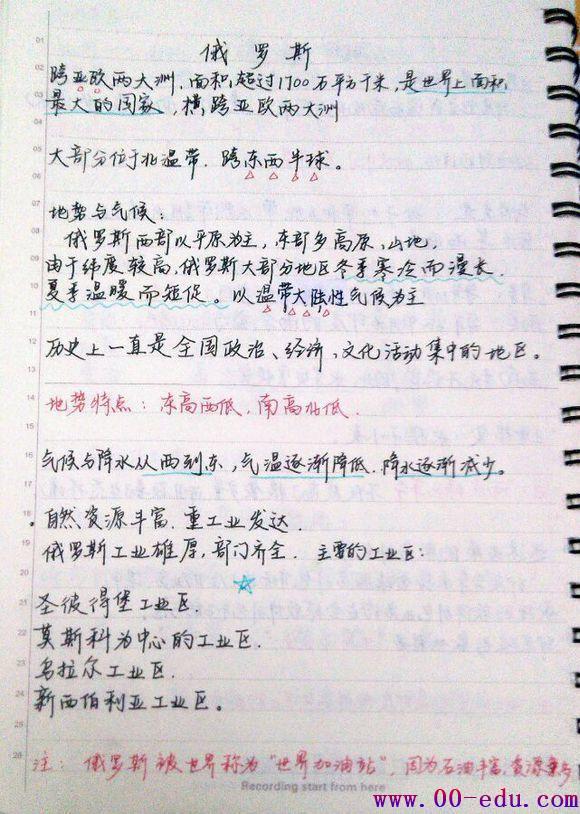 俄罗斯
跨亚欧两大洲,面积超过1700万平方千米,是世界上面积
最大的国家,横跨亚欧两大洲
大部分位于北温带.跨东西半球。
地势与气候:
俄罗斯西部以平原为主,东部多高原,山地,
由于纬度较高,俄罗斯大部分地区冬季寒冷而漫长.
夏季温暖而短促。以温带大陆性气候为主
历史上一直是全国政治、经济,文化活动集中的地区。
地势特点:东高西低,南高北低.
气候与降水从西到东,气温逐渐降低.降水逐渐减少。
自然资源丰富.重工业发达.
俄罗斯工业雄厚,部门齐全. 主要的工业区:
圣彼得堡工业区
莫斯科为中心的工业区.
乌拉尔工业区.
新西伯利亚工业区。
注: 俄罗斯被世界称为"世界加油站",因为石油丰富,资源
Recording start from here
www.00-edu.com
01
02
03
04
05
06
07
08
09
10
11
12
13
14
15
16
17
18
19
20
21
22
23
24
25
26